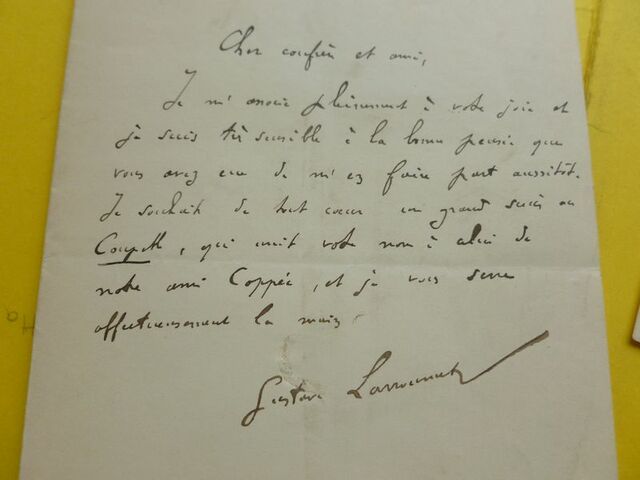 Cher confrère et ami,
Je m'associe pleinement à votre joie et
je suis très sensible à la bonne pensée que
vous avez eue de m'en faire part aussitôt.
Je souhaite de tout coeur un grand succès au
qui unit votre nom à celui de
notre ami Coppée, et je vous serre
affectueusement la main.
Gustave Larroumet